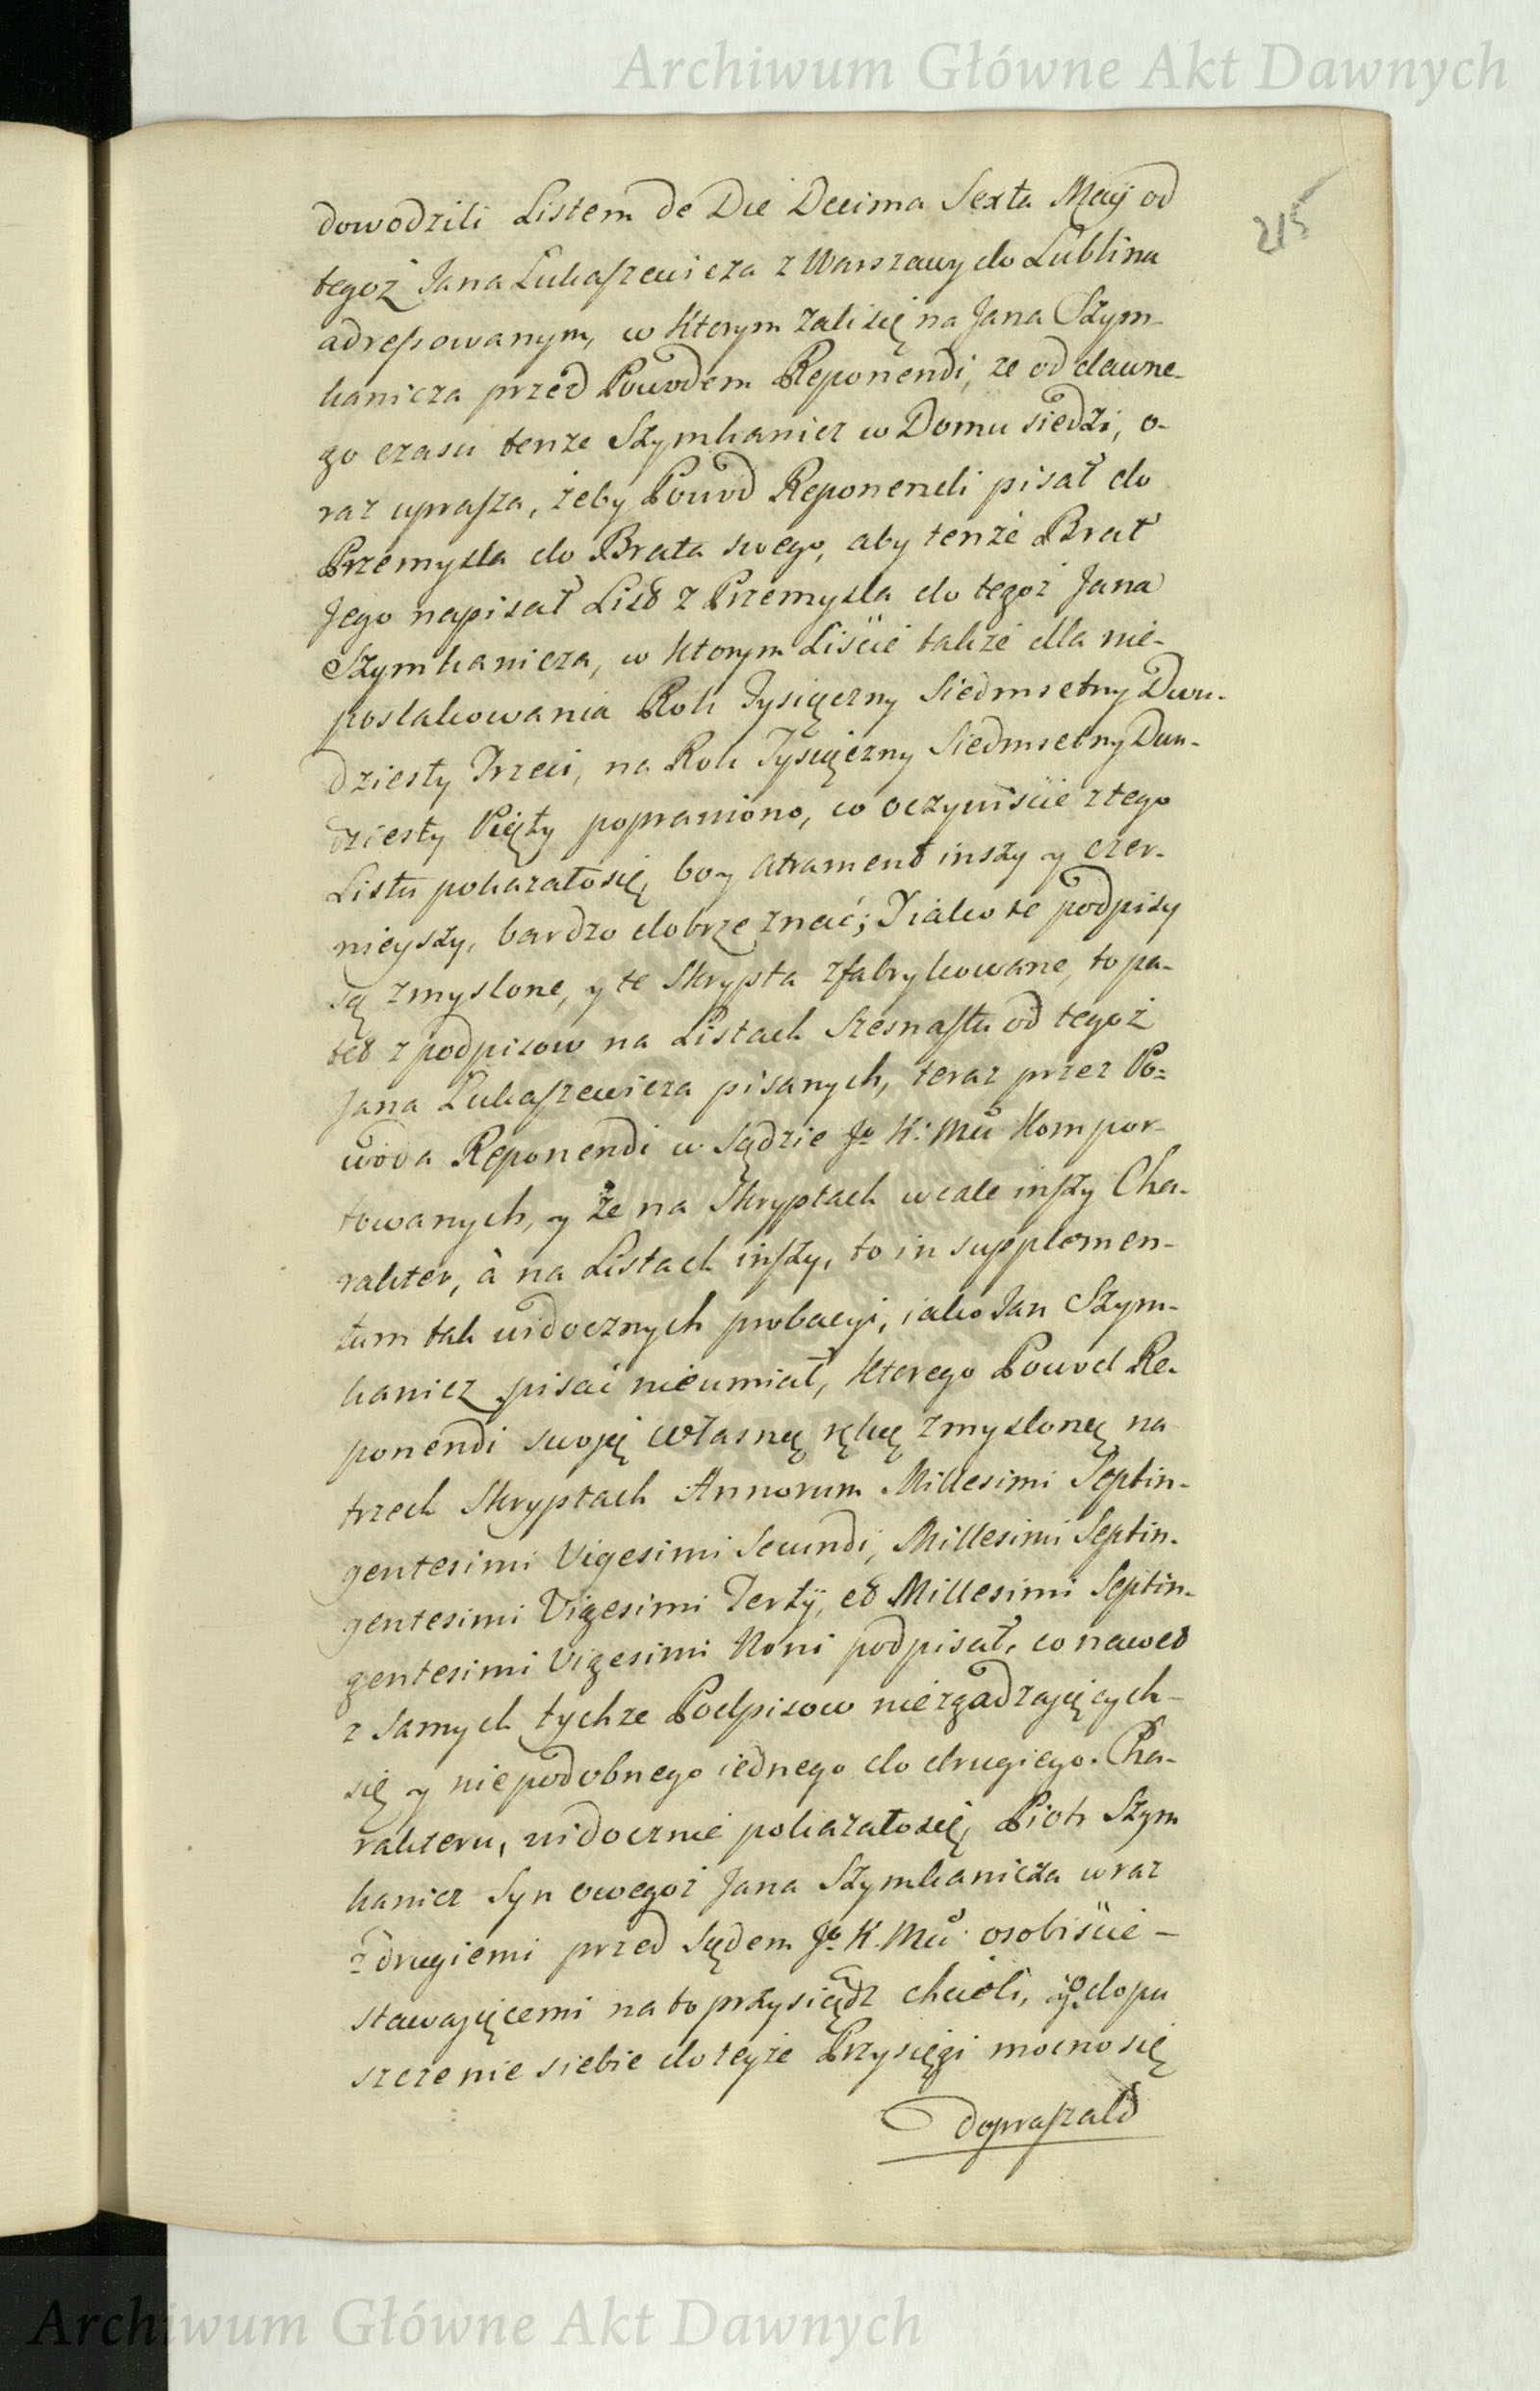 Archiwum Główne Akt Dawnych
215
dowodzili Listem de Die Decima Sexta Maij od
tegoż Jana Łukaszewicza z Warszawy do Lublina
adressowanym, w ktorym żali się na Jana Szym-
kanicza przed Powodem Reponendi, że od dawne-
go czasu tenże Szymkanicz w Domu siedzi, o-
raz uprasza, żeby Powod Reponendi pisał do
Przemysla do Brata swego, aby tenże Brat
Jego napisał List z Przemysla do tegoż Jana
Szymkanicza, w ktorym Liście także dla nie-
poszlakowania Rok Tysiączny Siedmsetny Dwu-
dziesty Trzeci, na Rok Tysiączny Siedmsetny Dwu-
dziesty Piąty poprawiono, co oczywiście z tego
Listu pokazało się, bo y Atrament inszy y czer-
nieyszy, bardzo dobrze znać; I iako te podpisy
są zmyslone, y te Skrypta zfabrykowane, to pa-
tet z podpisow na Listach Szesnastu od tegoż
Jana Łukaszewicza pisanych, teraz przez Po=
woda Reponendi w Sądzie Jo K: Mci Kompor-
towanych, y że na Skryptach wcale inszy Cha-
rakter, à na Listach inszy, to in supplemen-
tum tak widocznych probacyi, iako Jan Szym-
kanicz pisać nieumiał, ktorego Powod Re-
ponendi swoją własną ręką zmysloną na
trzech Skryptach Annorum Millesimi Septin-
gentesimi Vigesimi Secundi, Millesimi Septin-
gentesimi Vigesimi Tertij, et Millesimi Septin-
gentesimi Vigesimi Noni podpisał, co nawet
z samych tychże Podpisow niezgadzaiących-
się y niepodobnego iednego do drugiego Cha-
rakteru, widocznie pokazało się, Piotr Szym
kanicz Syn owegoż Jana Szymkanicza wraz
z drugiemi przed Sądem Jo K. Mci osobiście –
stawaiącemi na to przysiądz chcieli, y o dopu
szczenie siebie do teyże Przysięgi mocno się
dopraszali
Archiwum Główne Akt Dawnych